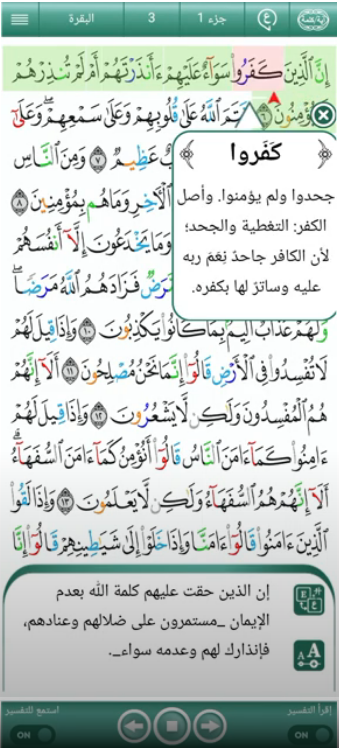 البقرة
3
جزء 1
إِنَّ ٱلَّذِينَ كَفَرُوا۟ سَوَآءٌ عَلَيْهِمْ ءَأَنذَرْتَهُمْ أَمْ لَمْ تُنذِرْهُمْ
يُؤْمِنُونَ ٦ خَتَمَ ٱللَّهُ عَلَىٰ قُلُوبِهِمْ وَعَلَىٰ سَمْعِهِمْ ۖ وَعَلَىٰٓ
كَفَروا
عَظِيمٌ ٧ وَمِنَ ٱلنَّاسِ
جحدوا ولم يؤمنوا. وأصل
ٱلْـَٔاخِرِ وَمَا هُم بِمُؤْمِنِينَ ٨
الكفر: التغطية والجحد؛
وَمَا يَخْدَعُونَ إِلَّآ أَنفُسَهُمْ
لأن الكافر جاحدٌ نِعَمَ ربه
مَّرَضٌ فَزَادَهُمُ ٱللَّهُ مَرَضًا ۖ
عليه وساترٌ لها بكفره.
وَلَهُمْ عَذَابٌ أَلِيمٌۢ بِمَا كَانُوا۟ يَكْذِبُونَ ١٠ وَإِذَا قِيلَ لَهُمْ
لَا تُفْسِدُوا۟ فِى ٱلْأَرْضِ قَالُوٓا۟ إِنَّمَا نَحْنُ مُصْلِحُونَ ١١ أَلَآ إِنَّهُمْ
هُمُ ٱلْمُفْسِدُونَ وَلَـٰكِن لَّا يَشْعُرُونَ ١٢ وَإِذَا قِيلَ لَهُمْ
ءَامِنُوا۟ كَمَآ ءَامَنَ ٱلنَّاسُ قَالُوٓا۟ أَنُؤْمِنُ كَمَآ ءَامَنَ ٱلسُّفَهَآءُ ۗ
أَلَآ إِنَّهُمْ هُمُ ٱلسُّفَهَآءُ وَلَـٰكِن لَّا يَعْلَمُونَ ١٣ وَإِذَا لَقُوا۟
ٱلَّذِينَ ءَامَنُوا۟ قَالُوٓا۟ ءَامَنَّا وَإِذَا خَلَوْا۟ إِلَىٰ شَيَـٰطِينِهِمْ قَالُوٓا۟ إِنَّا
إن الذين حقت عليهم كلمة الله بعدم
الإيمان _مستمرون على ضلالهم وعنادهم،
فإنذارك لهم وعدمه سواء_.
إقرأ التفسير
استمع للتفسير
ON
ON